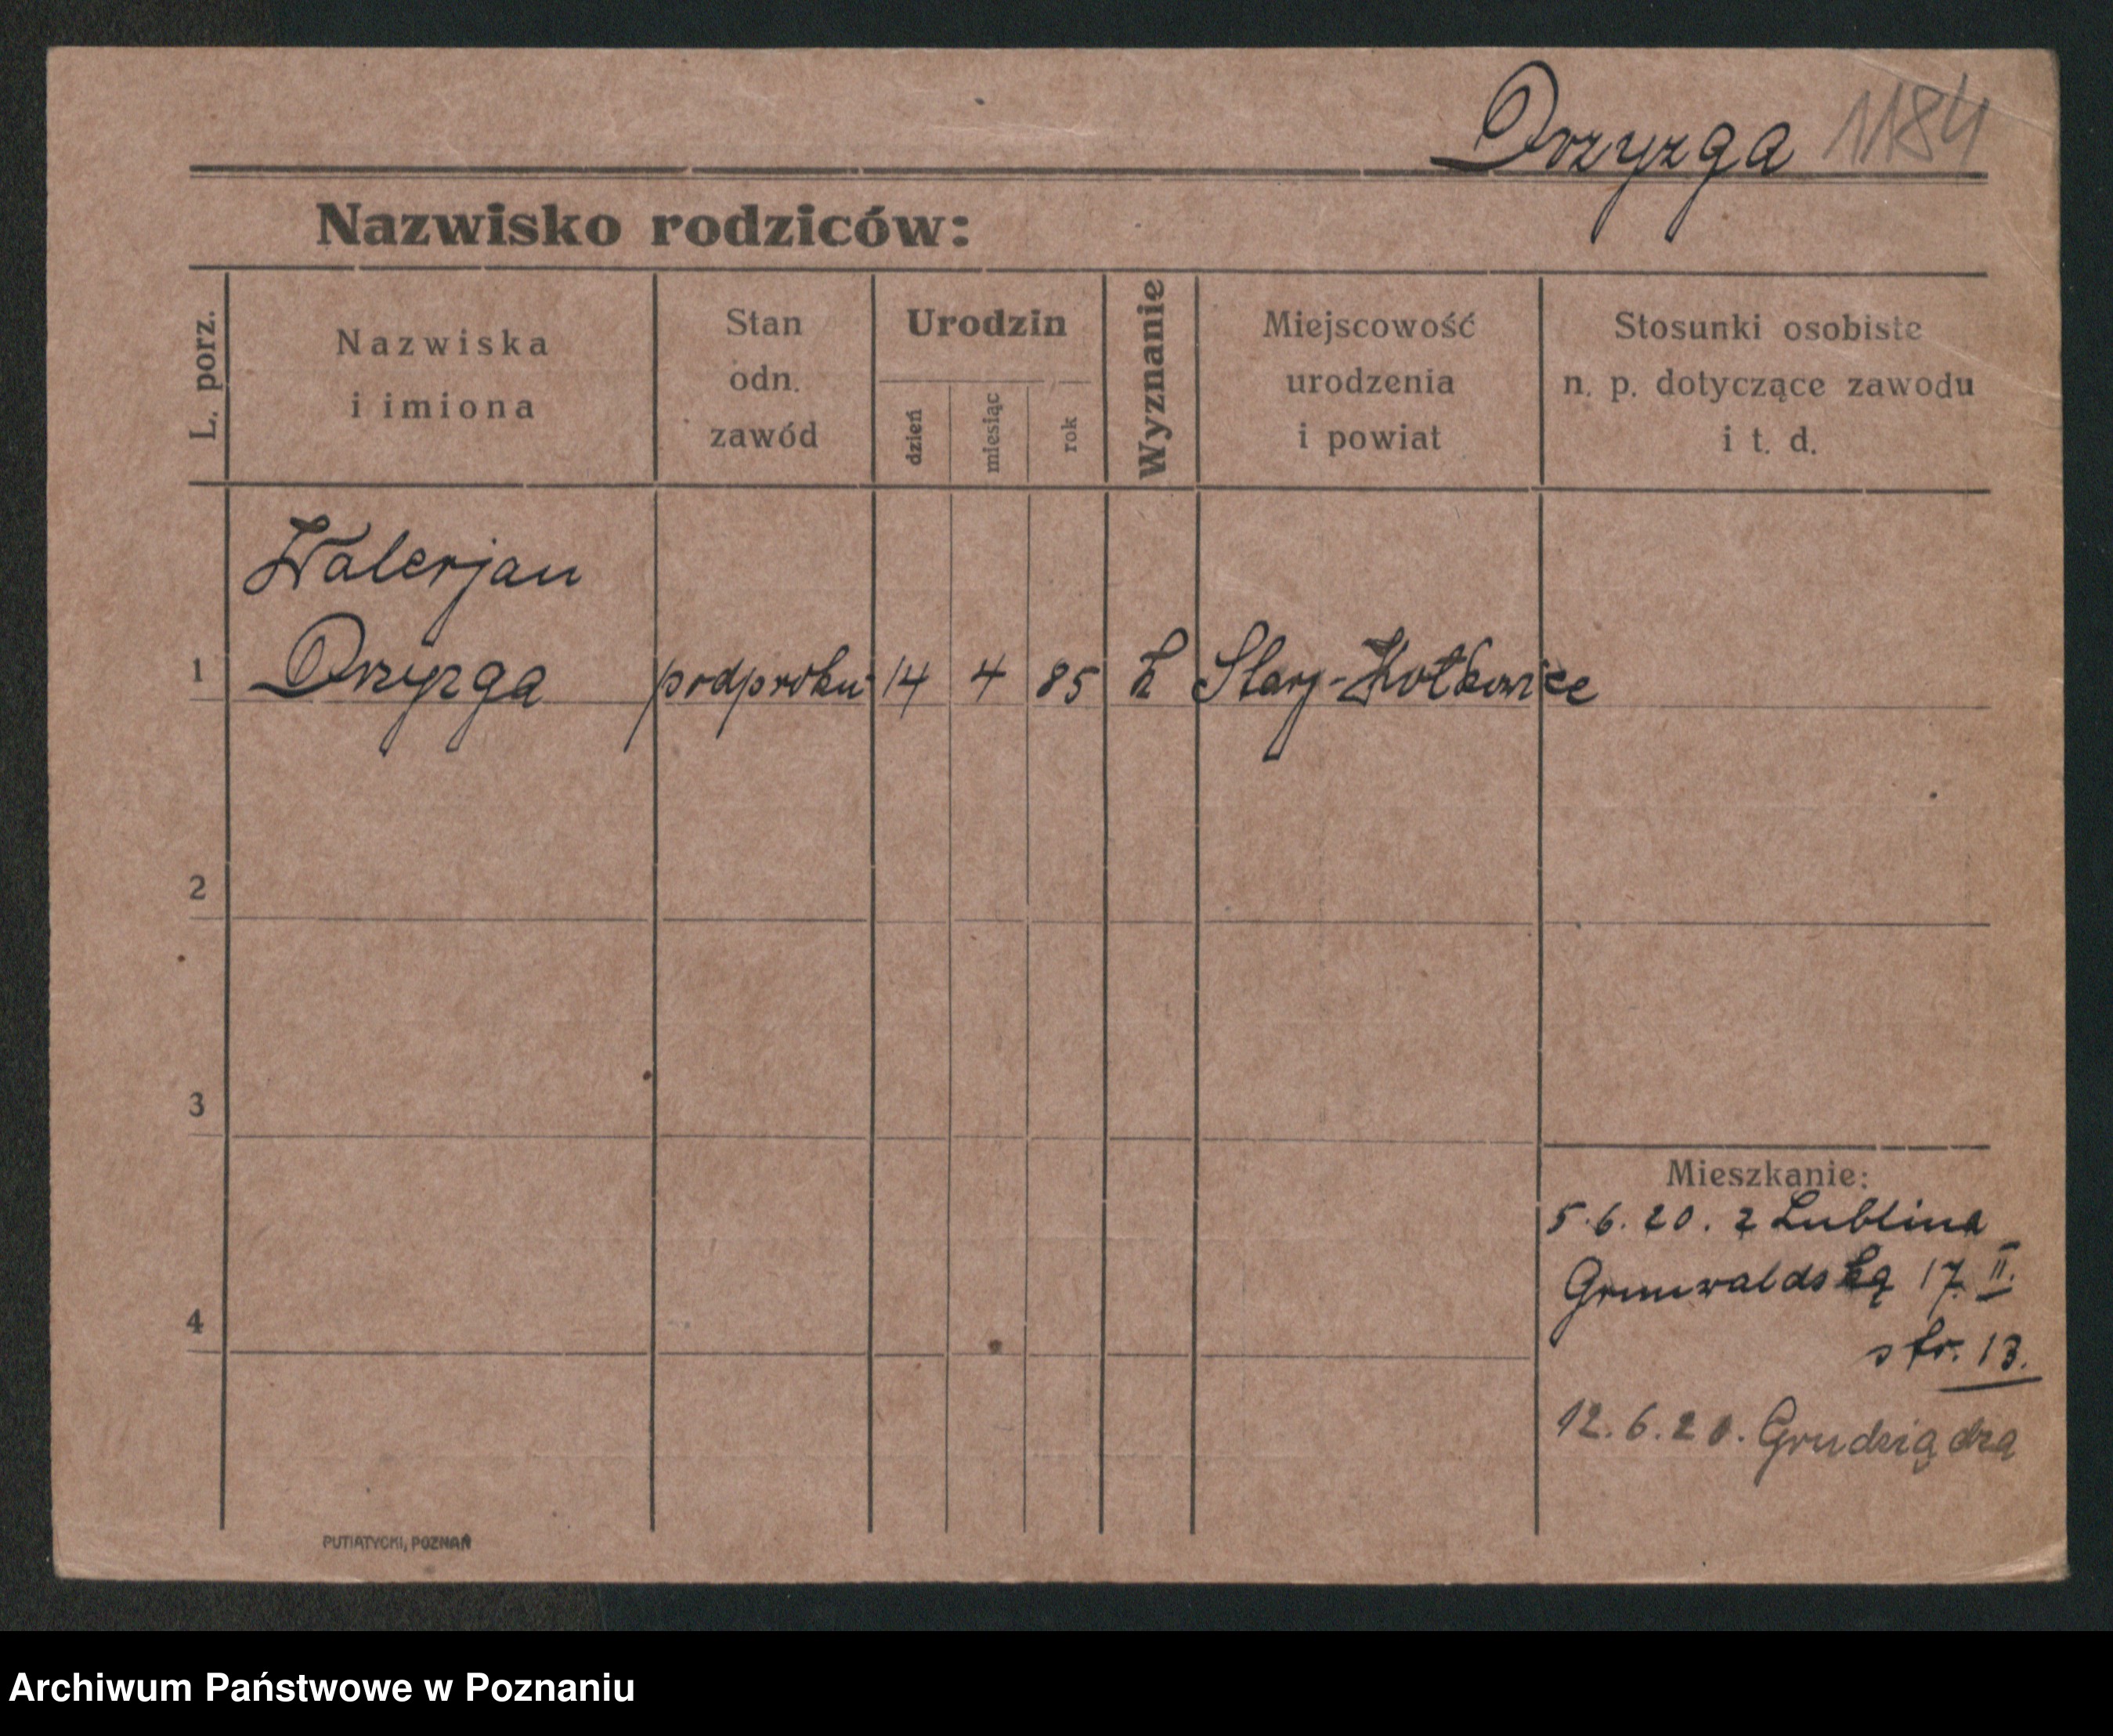 Drzyzga 1184
Nazwisko rodziców:
L. porz.
Nazwiska
i imiona
Stan
odn.
zawód
Urodzin
dzień
miesiąc
rok
Wyznanie
Miejscowość
urodzenia
i powiat
Stosunki osobiste
n. p. dotyczące zawodu
i t. d.
Walerjan
1 Drzyzga podproku 14 4 85 k Stary-Kotkowice
2
3
4
Mieszkanie:
5.6.20. z Lublina
Grunwaldską 17. II.
str. 13.
12.6.20. Grudziądza
PUTIATYCKI, POZNAŃ
Archiwum Państwowe w Poznaniu